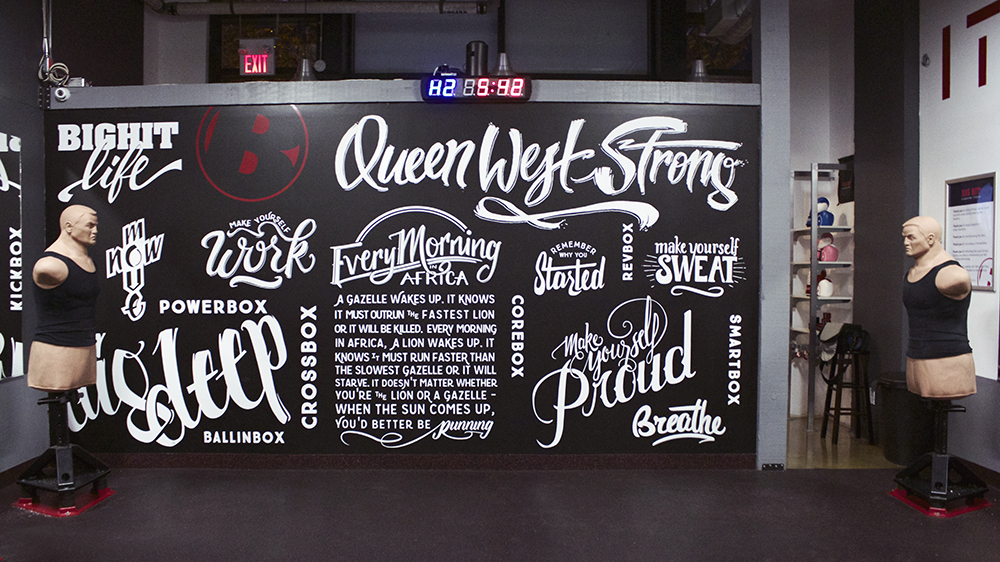 EXIT
H2 5:42
IT
BIGHIT
life
B
Queen West Strong
KICKBOX
move
now
POWERBOX
MAKE YOURSELF
Work
EVERY MORNING
IN
AFRICA
A GAZELLE WAKES UP. IT KNOWS
IT MUST OUTRUN THE FASTEST LION
OR IT WILL BE KILLED. EVERY MORNING
IN AFRICA, A LION WAKES UP. IT
KNOWS IT MUST RUN FASTER THAN
THE SLOWEST GAZELLE OR IT WILL
STARVE. IT DOESN'T MATTER WHETHER
YOU'RE THE LION OR A GAZELLE -
WHEN THE SUN COMES UP,
YOU'D BETTER BE running
REMEMBER
WHY YOU
Started
REVBOX
make yourself
SWEAT
dig deep
CROSSBOX
BALLINBOX
COREBOX
Make
yourself
Proud
SMARTBOX
Breathe